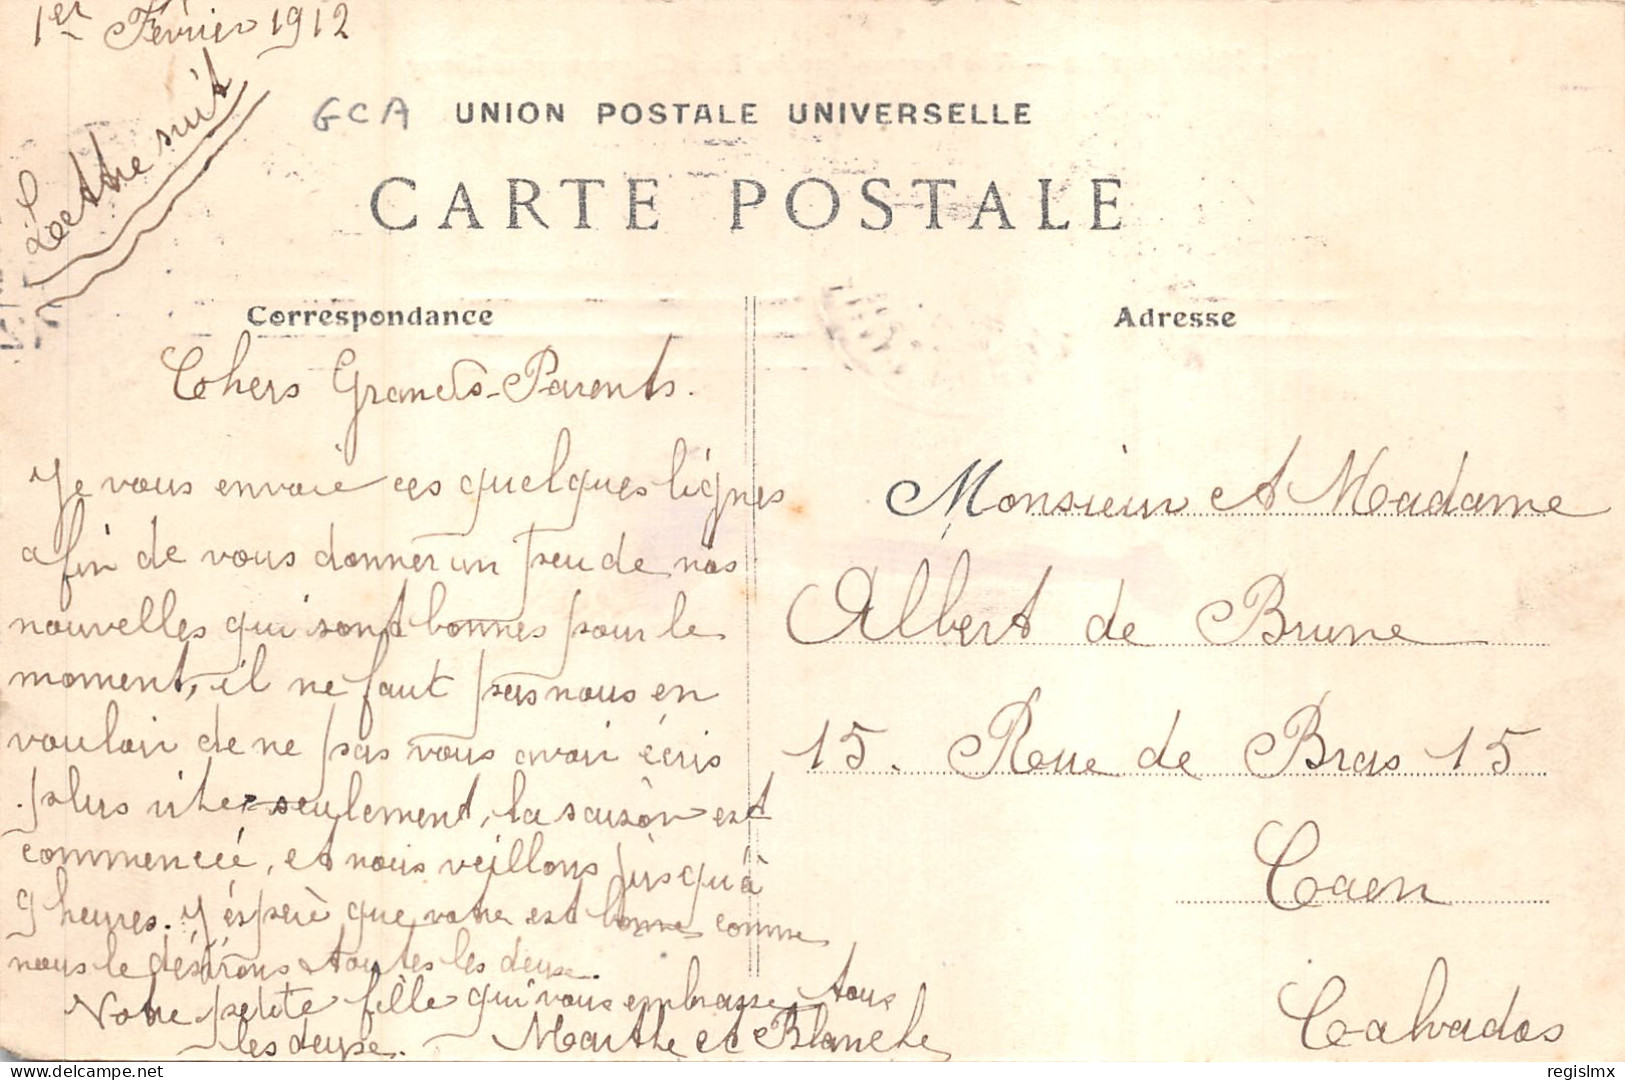 1er Février 1912
Lettre suit
GCA UNION POSTALE UNIVERSELLE
CARTE POSTALE
Correspondance
Chers Grands-Parents.
Je vous envoie ces quelques lignes
afin de vous donner un peu de nos
nouvelles qui sont bonnes pour le
moment, il ne faut pas nous en
vouloir de ne pas vous avoir écris
plus vite seulement, la saison est
commencée, et nous veillons jusqu'à
9 heures. J'éspère que votre est bonne comme
nous le désirons toutes les deux.
Votre petite fille qui vous embrasse tous
les deux. Marthe et Blanche
Adresse
Monsieur et Madame
Albert de Brune
15. Rue de Bras 15
Caen
Calvados
regislmx